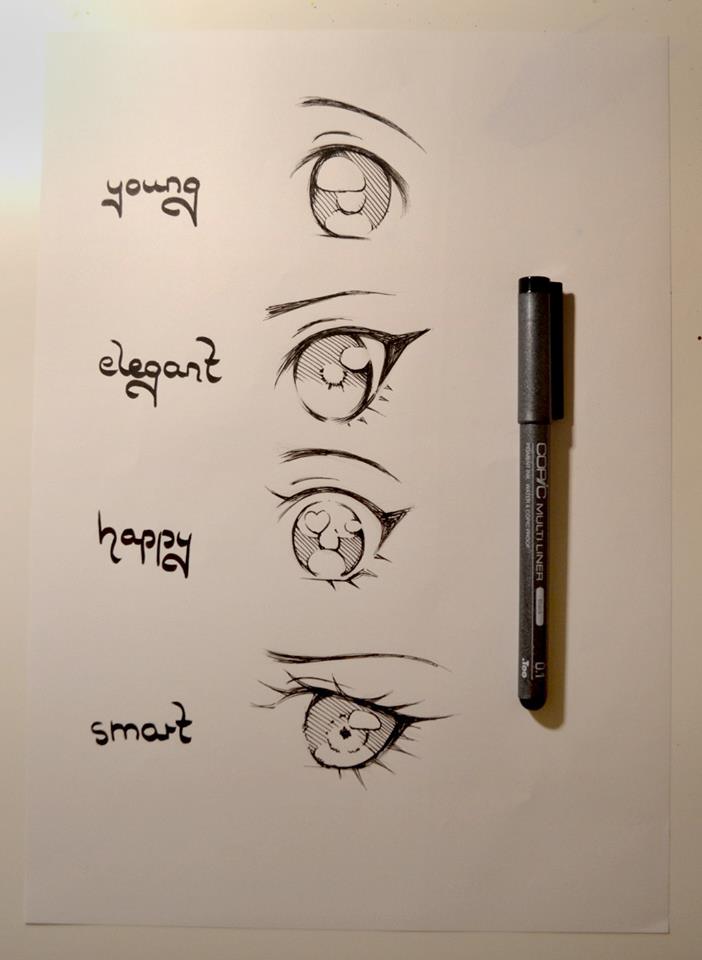 young
elegant
happy
smart
COPIC MULTI LINER
PIGMENT INK WATER & COPIC PROOF
0.1
.Too